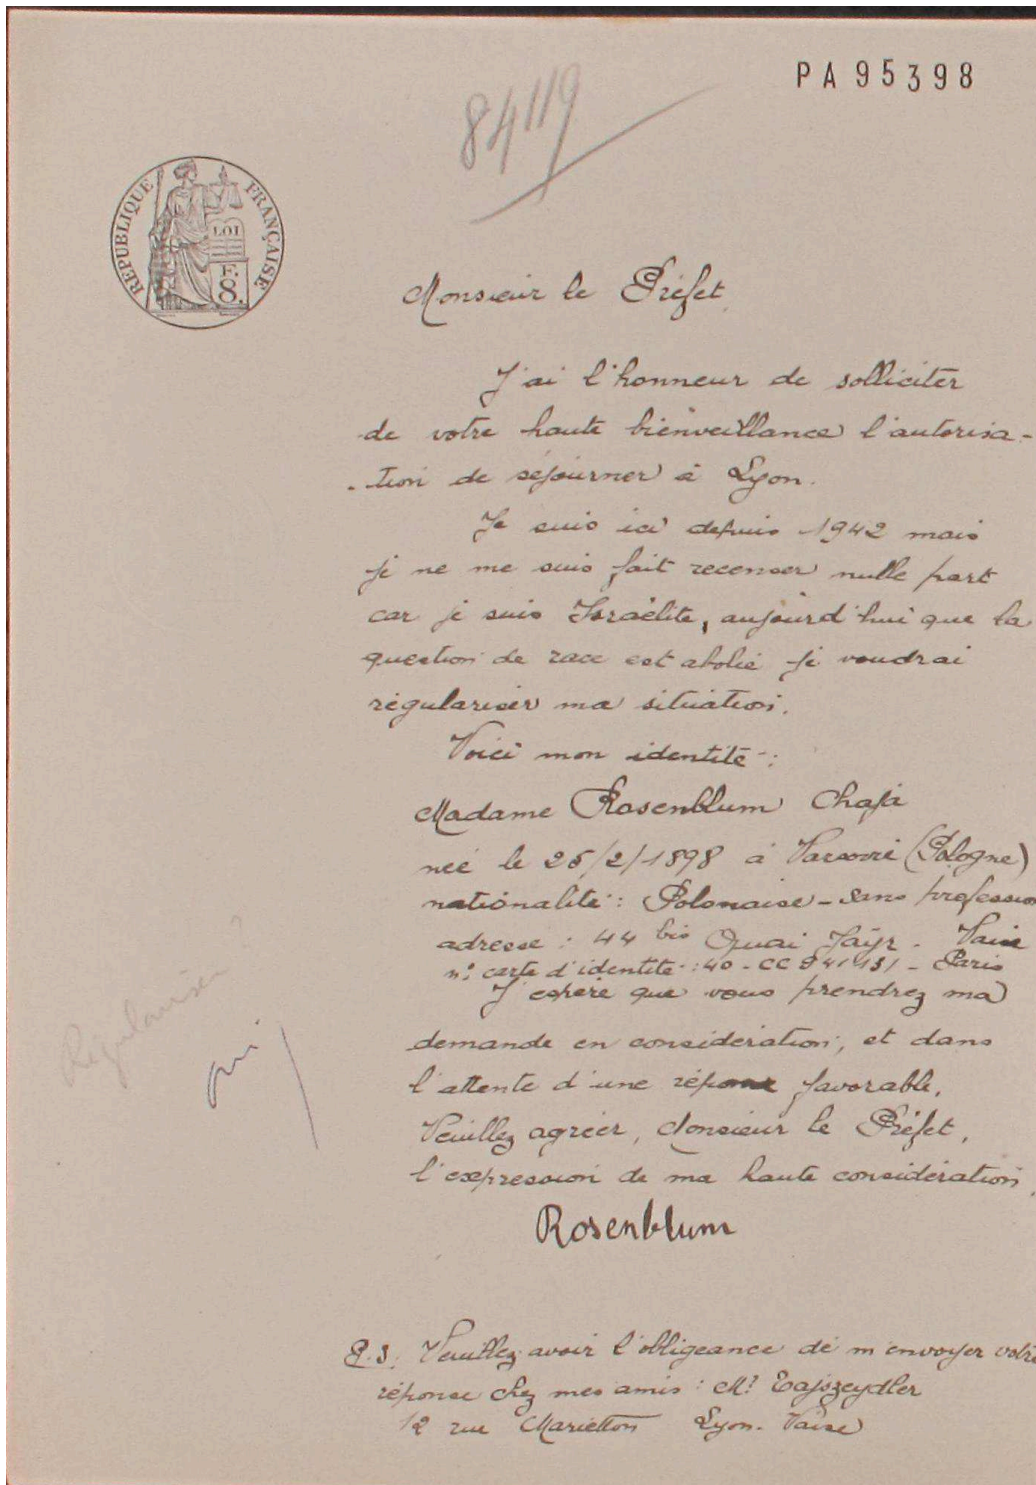 PA95398
84119
RÉPUBLIQUE FRANÇAISE
LOI
F.
8.
Monsieur le Préfet
J'ai l'honneur de solliciter
de votre haute bienveillance l'autorisa-
-tion de séjourner à Lyon.
Je suis ici depuis 1942 mais
je ne me suis fait recenser nulle part
car je suis Israélite, aujourd'hui que la
question de race est abolie je voudrai
régulariser ma situation.
Voici mon identité :
Madame Rosenblum Chaja
née le 25/2/1898 à Varsovie (Pologne)
nationalité : Polonaise - sans profession
adresse : 44 bis Quai Jaÿr - Vaise
n° carte d'identité : 40 - CC 941151 - Paris
J'espère que vous prendrez ma
demande en considération, et dans
l'attente d'une réponse favorable,
Veuillez agréer, Monsieur le Préfet,
l'expression de ma haute considération.
Régulariser ?
oui
Rosenblum
P.S. Veuillez avoir l'obligeance de m'envoyer votre
réponse chez mes amis : Mr Tajszeydler
12 rue Marietton Lyon-Vaise